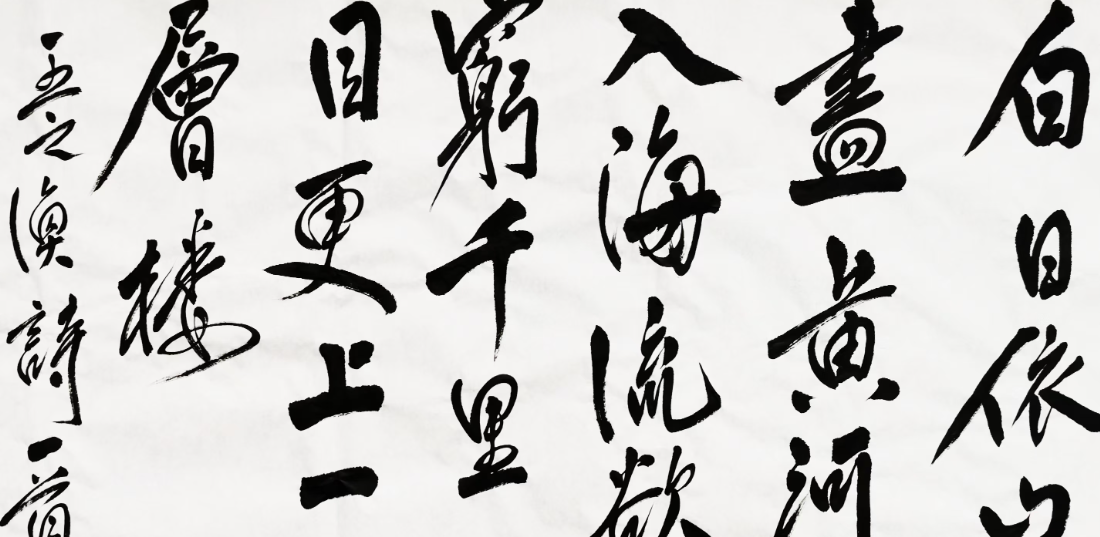 白日依山
盡黃河
入海流欲
窮千里
目更上一
層樓
王之渙詩一首